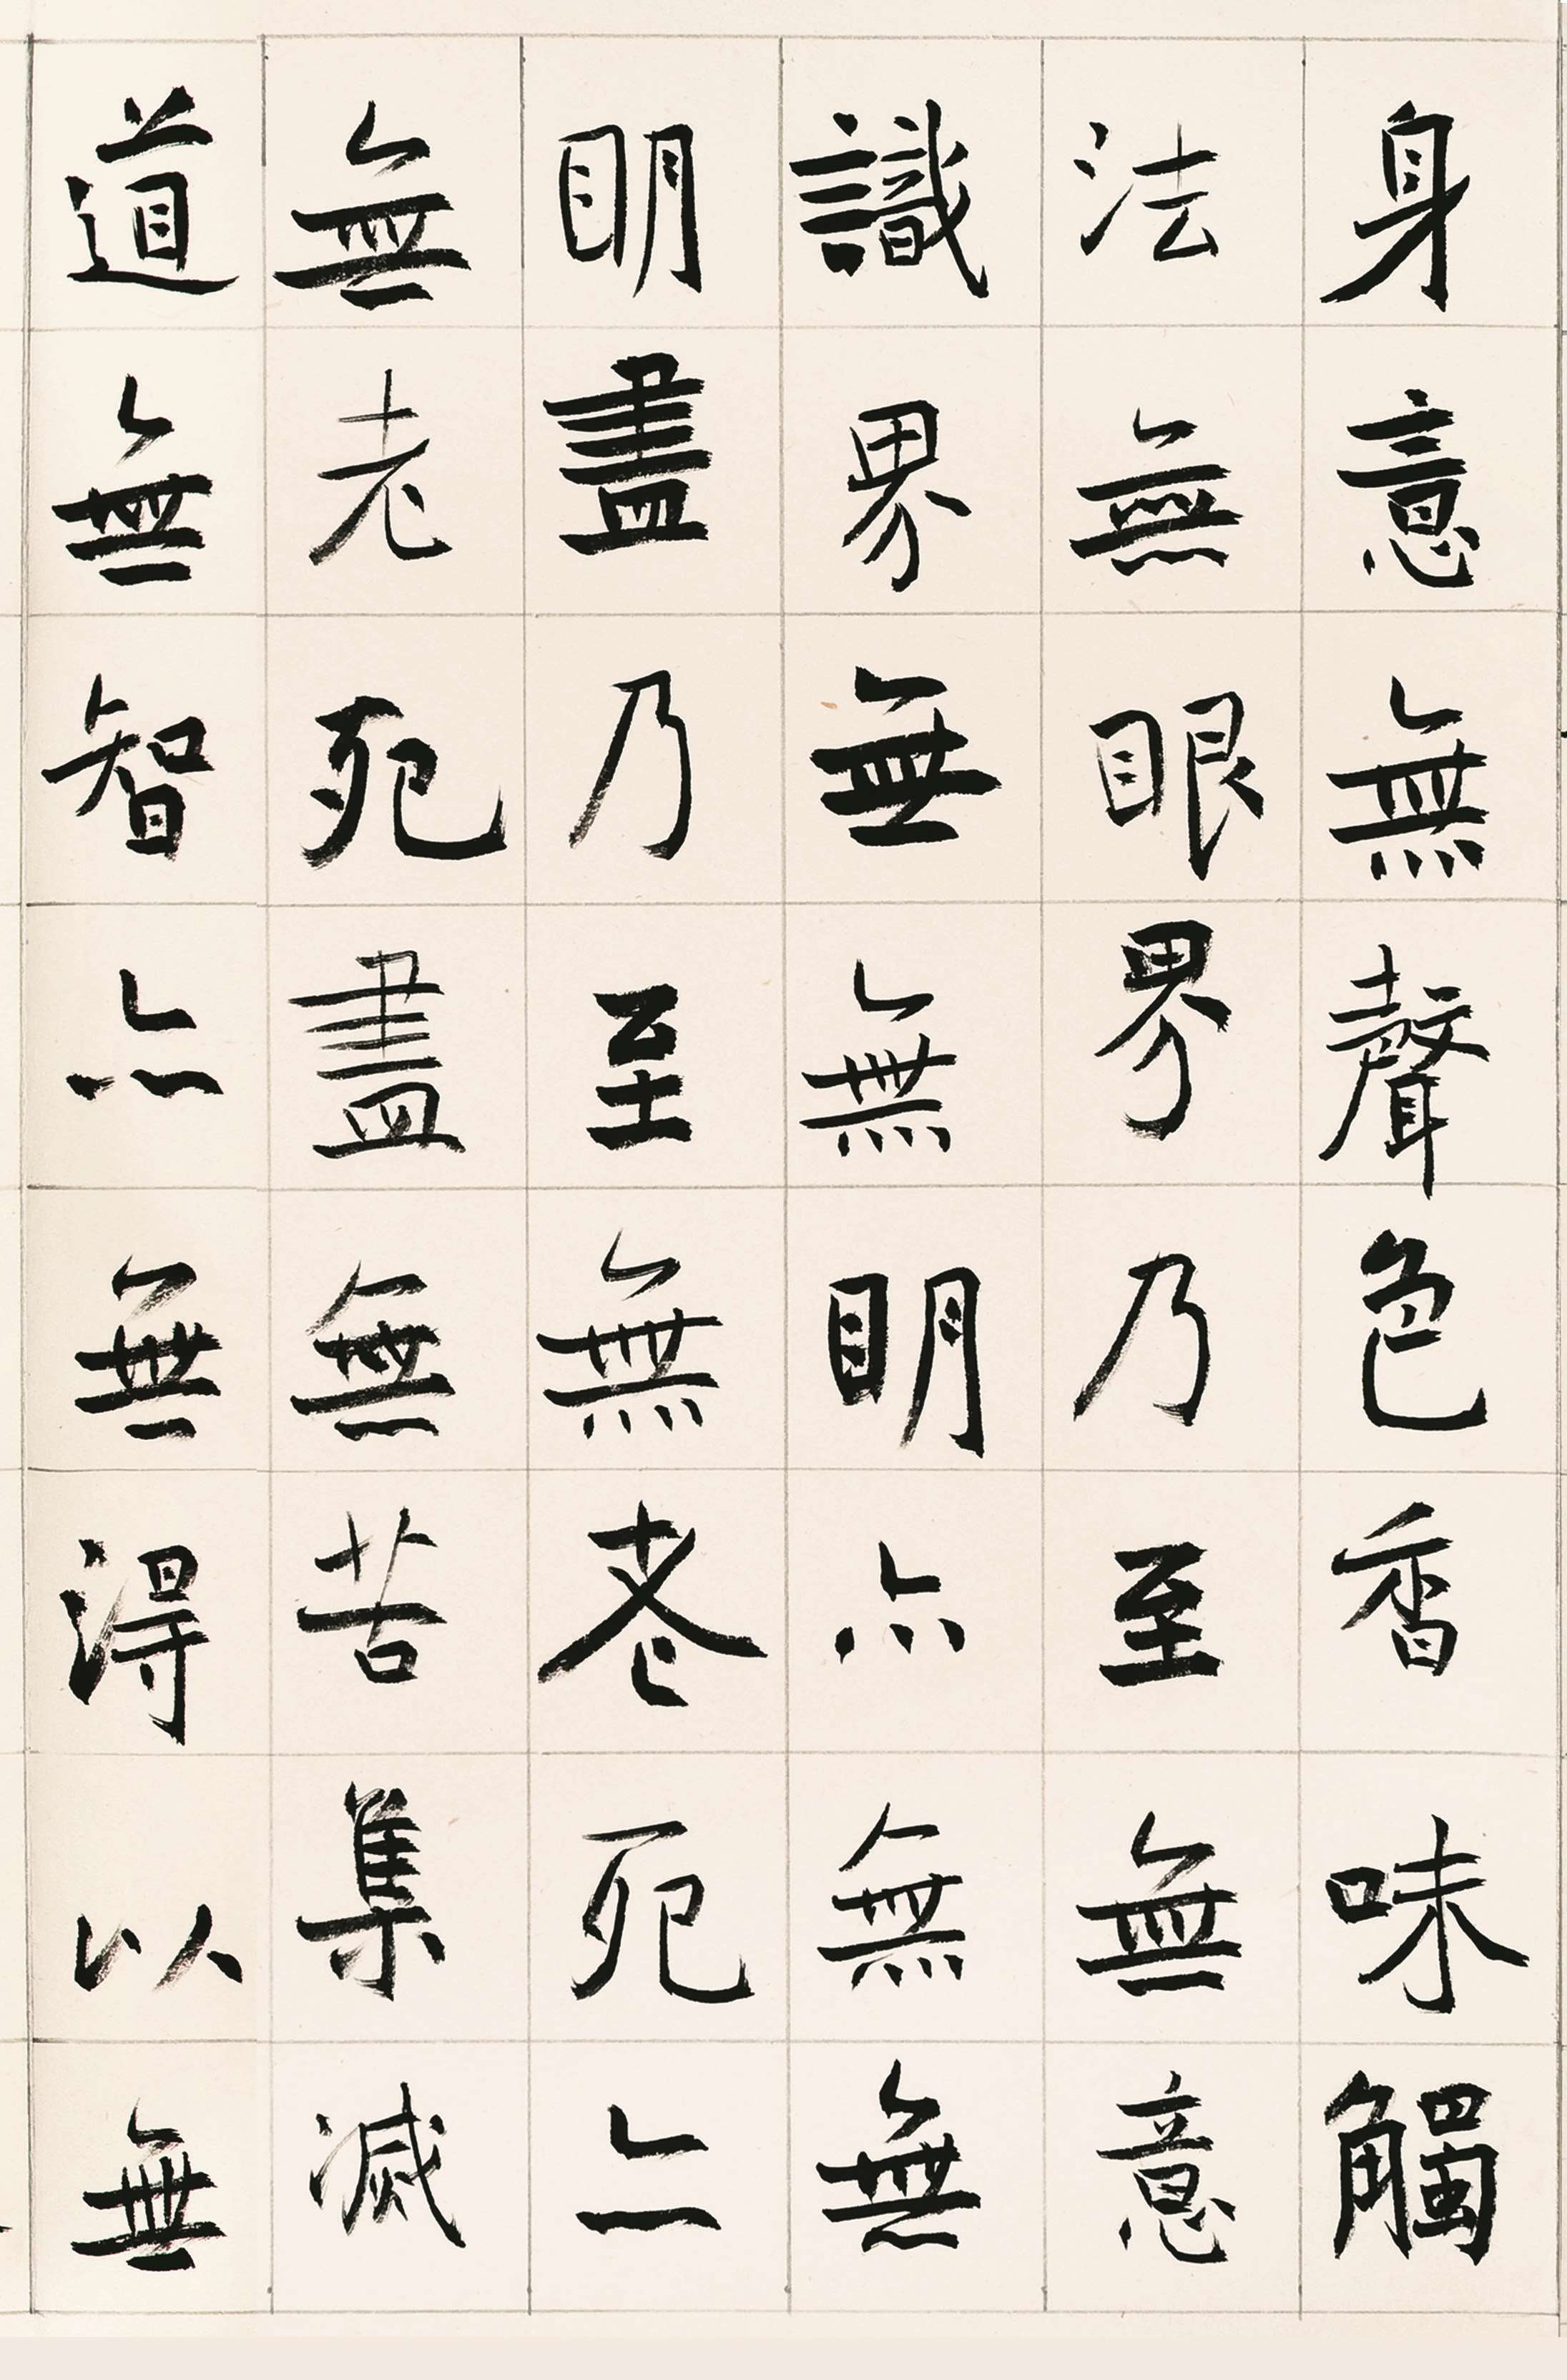 身意無聲色香味觸
法無眼界乃至無意
識界無無明亦無無
明盡乃至無老死亦
無老死盡無苦集滅
道無智亦無得以無